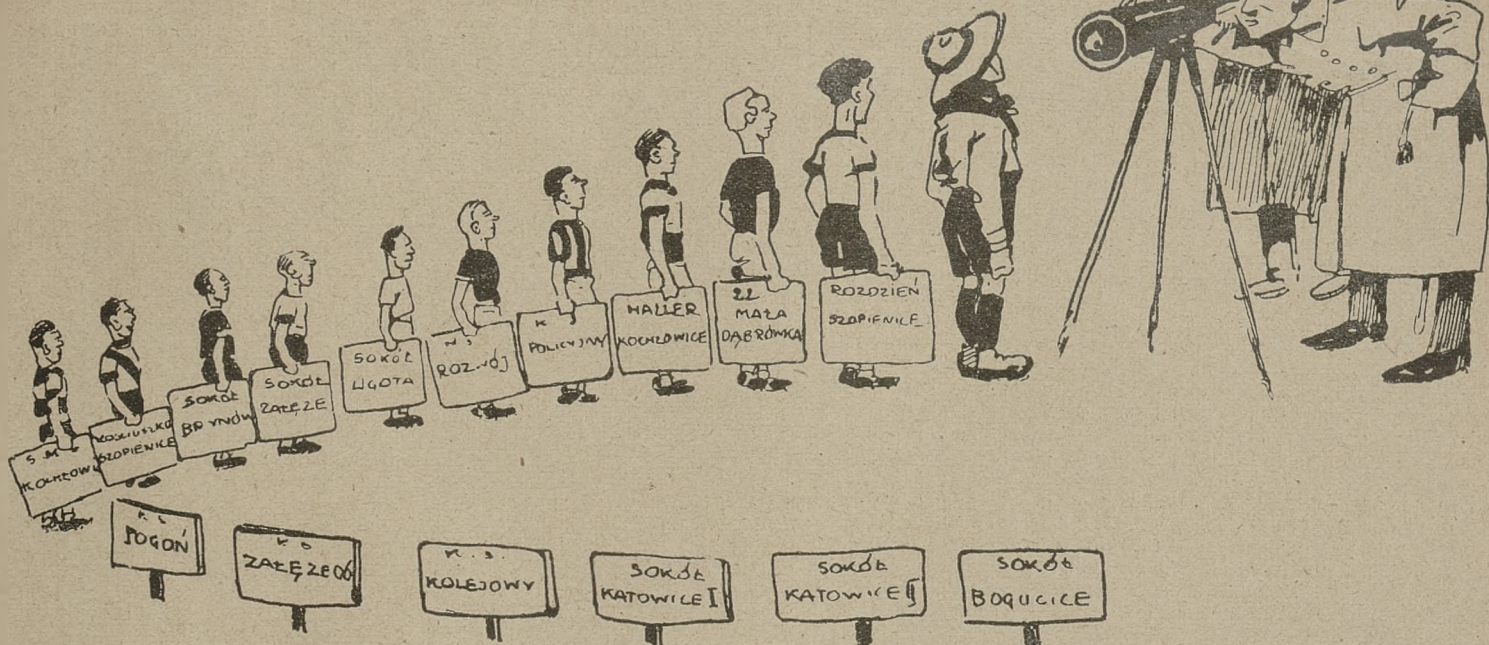 S. M.
KOCHŁOW
KOŚCIUSZKO
SZOPIENICE
SOKÓŁ
BRYNÓW
SOKÓŁ
ZAŁĘŻE
SOKÓŁ
LIGOTA
ROZWÓJ
K S
POLICYJNY
HALLER
KOCHŁOWICE
22
MAŁA
DĄBRÓWKA
ROZDZIEŃ
SZOPIENICE
POGOŃ
ZAŁĘŻE 06
K. S.
KOLEJOWY
SOKÓŁ
KATOWICE I
SOKÓŁ
KATOWICE II
SOKÓŁ
BOGUCICE